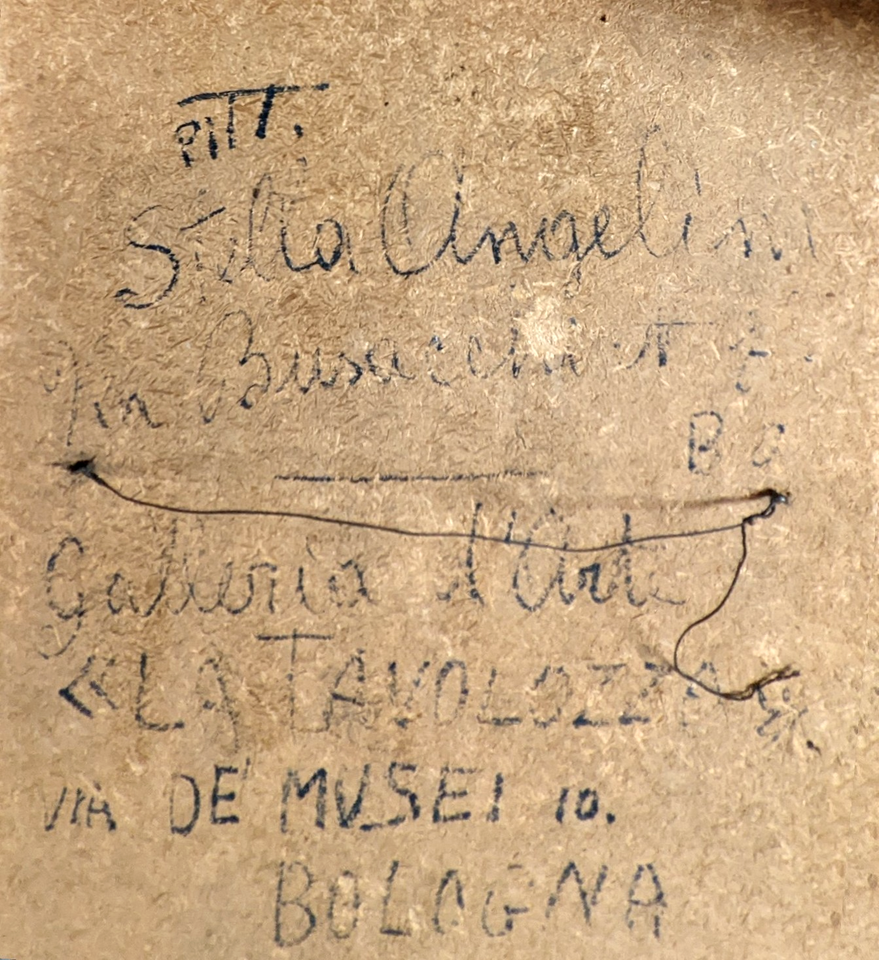 PITT.
Stella Angelini
Via Busacchi
BO
Galleria d'Arte
«LA TAVOLOZZA».
VIA DE' MUSEI 10.
BOLOGNA